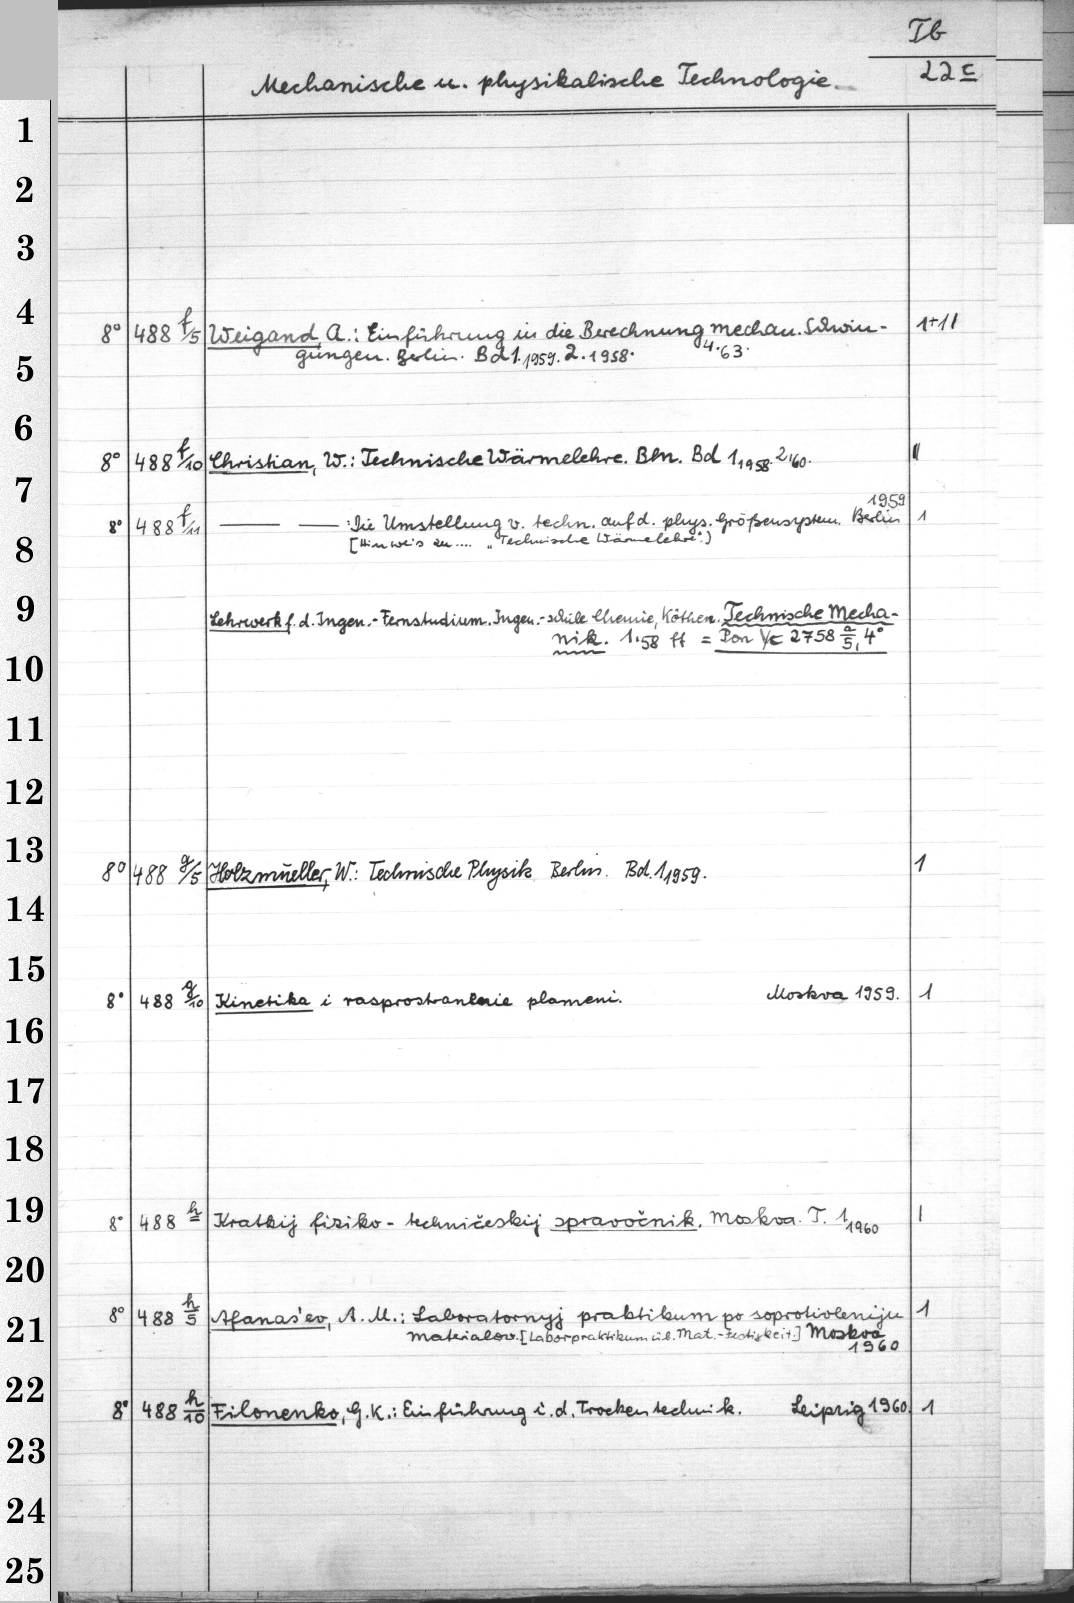 Tb
22 c
Mechanische u. physikalische Technologie
1
2
3
4
8° 488 f/5 Weigand, A.: Einführung in die Berechnung mechan. Schwin- 1+1/
gungen. Berlin. Bd 1. 1959. 2. 1958. 4. 63.
5
6
8° 488 f/10 Christian, W.: Technische Wärmelehre. Bln. Bd 1, 1958. 2, 60. 11
7
1959
8° 488 f/11 —— —— : Die Umstellung v. techn. auf d. phys. Größensystem. Berlin 1
[Hinweis zu .... "Technische Wärmelehre".]
8
9
Lehrwerk f. d. Ingen.-Fernstudium. Ingen.-schule Chemie, Köthen. Technische Mecha-
nik. 1. 58 ff = Pon Vc 2758 a/5, 4°
10
11
12
13
8° 488 g/5 Holzmüller, W.: Technische Physik Berlin. Bd. 1, 1959. 1
14
15
8° 488 g/10 Kinetika i rasprostranenie plameni. Moskva 1959. 1
16
17
18
19
8° 488 h Kratkij fiziko-techničeskij spravočnik. Moskva. T. 1, 1960 1
20
8° 488 h/5 Afanas'ev, A. M.: Laboratornyj praktikum po soprotivleniju 1
21
materialov. [Laborpraktikum üb. Mat.-Festigkeit.] Moskva
1960
22
8° 488 h/10 Filonenko, G. K.: Einführung i. d. Trockentechnik. Leipzig 1960. 1
23
24
25